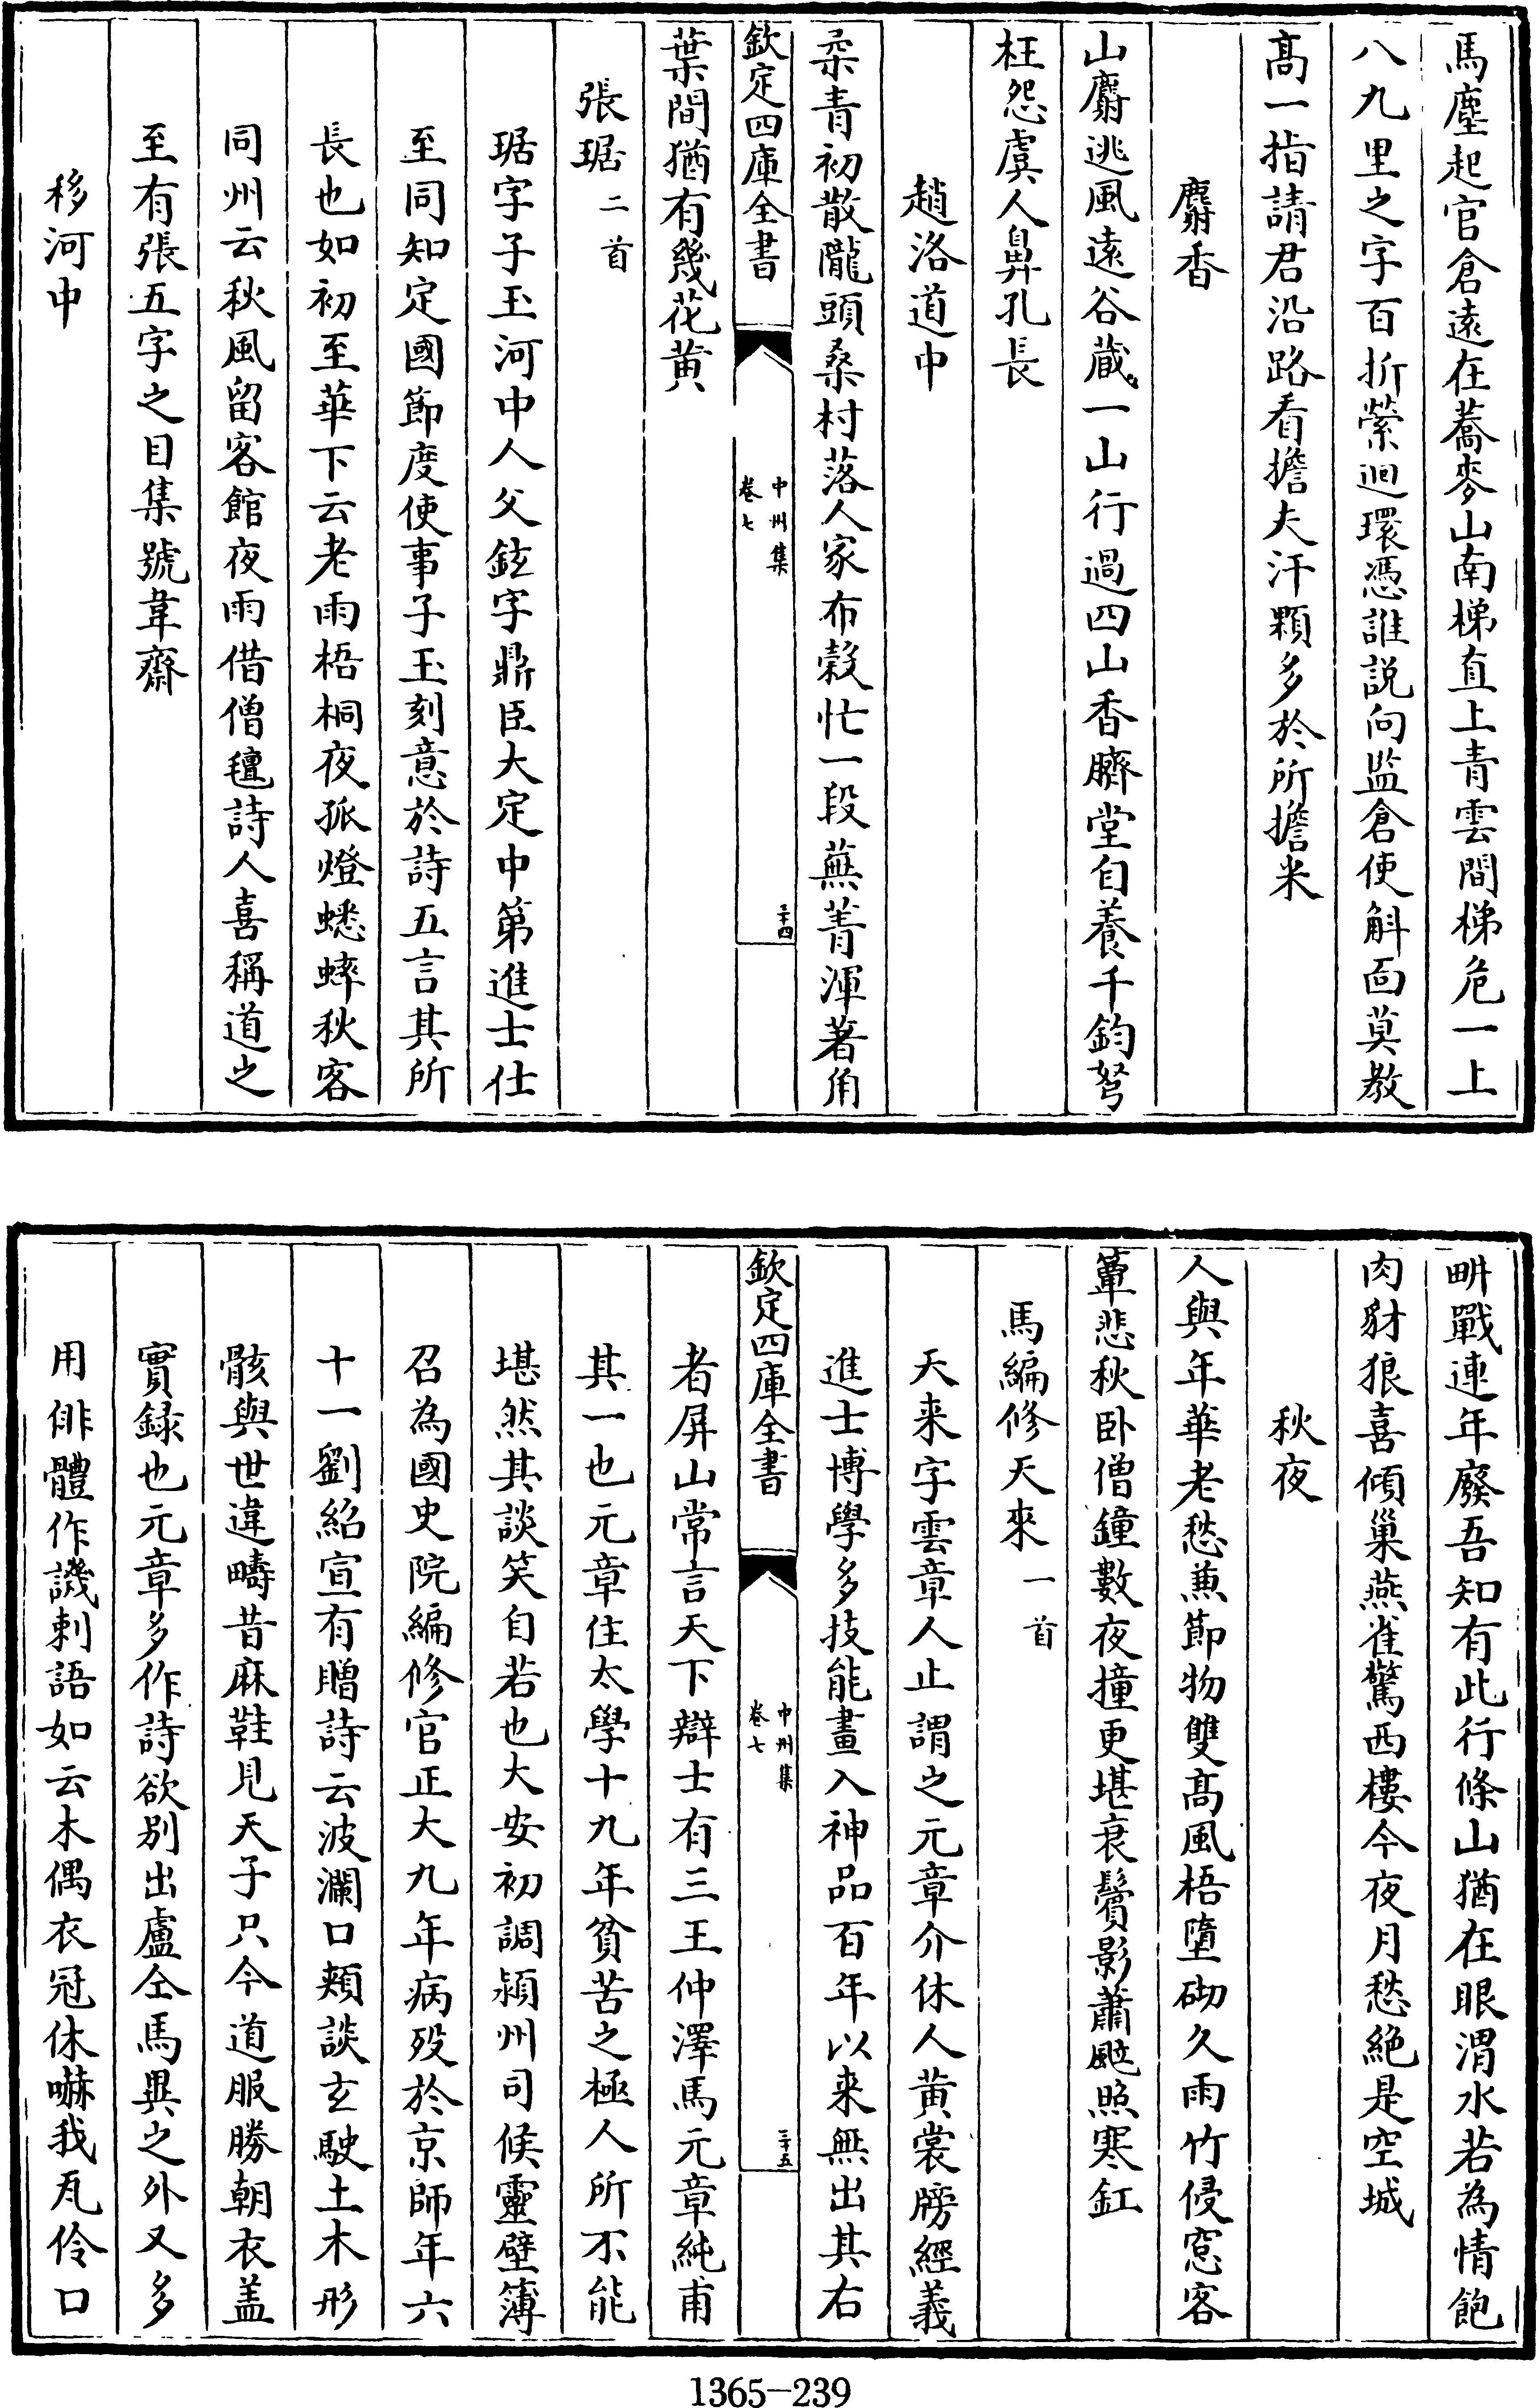 馬塵起官倉遠在蕎麥山南梯直上青雲間梯危一上
八九里之字百折縈迴環憑誰説向監倉使斛面莫教
髙一指請君沿路看擔夫汗顆多於所擔米
麝香
山麝逃風逺谷蔵一山行過四山香臍堂自養千鈞弩
枉怨虞人鼻孔長
趙洛道中
朶青初散隴頭桑村落人家布榖忙一段蕪菁渾著角
欽定四庫全書
中州集
卷七
三十四
葉間猶有幾花黄
張琚二首
琚字子玉河中人父鉉字鼎臣大定中第進士仕
至同知定國節度使事子玉刻意於詩五言其所
長也如初至華下云老雨梧桐夜孤燈蟋蟀秋客
同州云秋風留客館夜雨借僧氊詩人喜稱道之
至有張五字之目集號韋齋
移河中
畊戰連年廢吾知有此行條山猶在眼渭水若為情飽
肉豺狼喜傾巢燕雀驚西樓今夜月愁絶是空城
秋夜
人與年華老愁兼節物雙髙風梧墮砌久雨竹侵窓客
簟悲秋卧僧鐘數夜撞更堪衰鬢影蕭颯照寒釭
馬編修天來一首
天来字雲章人止謂之元章介休人黄裳牓經義
進士博學多技能畫入神品百年以来無出其右
欽定四庫全書
中州集
卷七
三十五
者屏山常言天下辯士有三王仲澤馬元章純甫
其一也元章住太學十九年貧苦之極人所不能
堪然其談笑自若也大安初調潁州司候靈壁簿
召為國史院編修官正大九年病歿於京師年六
十一劉紹宣有贈詩云波瀾口頰談玄駛土木形
骸與世違疇昔麻鞋見天子只今道服勝朝衣盖
實録也元章多作詩欲别出盧仝馬異之外又多
用俳體作譏刺語如云木偶衣冠休嚇我凡伶口
1365—239